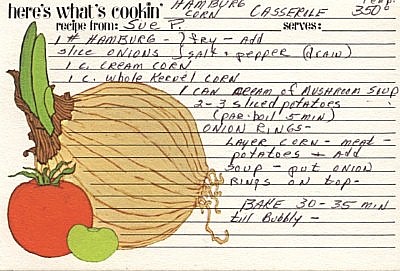 here's what's cookin' HAMBURG CORN CASSERILE Temp. 350°
recipe from: Sue P. serves:
1 # HAMBURG - } fry - add
slice ONIONS } salt + pepper (drain)
1 c. CREAM CORN
1 c. whole KERNEL CORN
1 CAN CREAM of MUSHROOM SOUP
2-3 sliced potatoes
(PAR-boil 5 min)
ONION RINGS -
LAYER CORN - meat -
potatoes - Add
SOUP - put ONION
RINGS on top -
BAKE 30-35 min
till Bubbly -